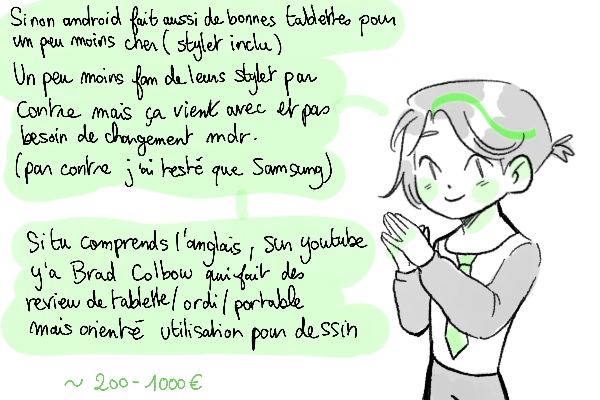 Sinon android fait aussi de bonnes tablettes pour
un peu moins cher (stylet inclu)
Un peu moins fan de leurs stylet par
contre mais ça vient avec et pas
besoin de changement mdr.
(par contre j'ai testé que Samsung)
Si tu comprends l'anglais, sur youtube
y'a Brad Colbow qui fait des
review de tablette/ordi/portable
mais orienté utilisation pour dessin
~ 200-1000€